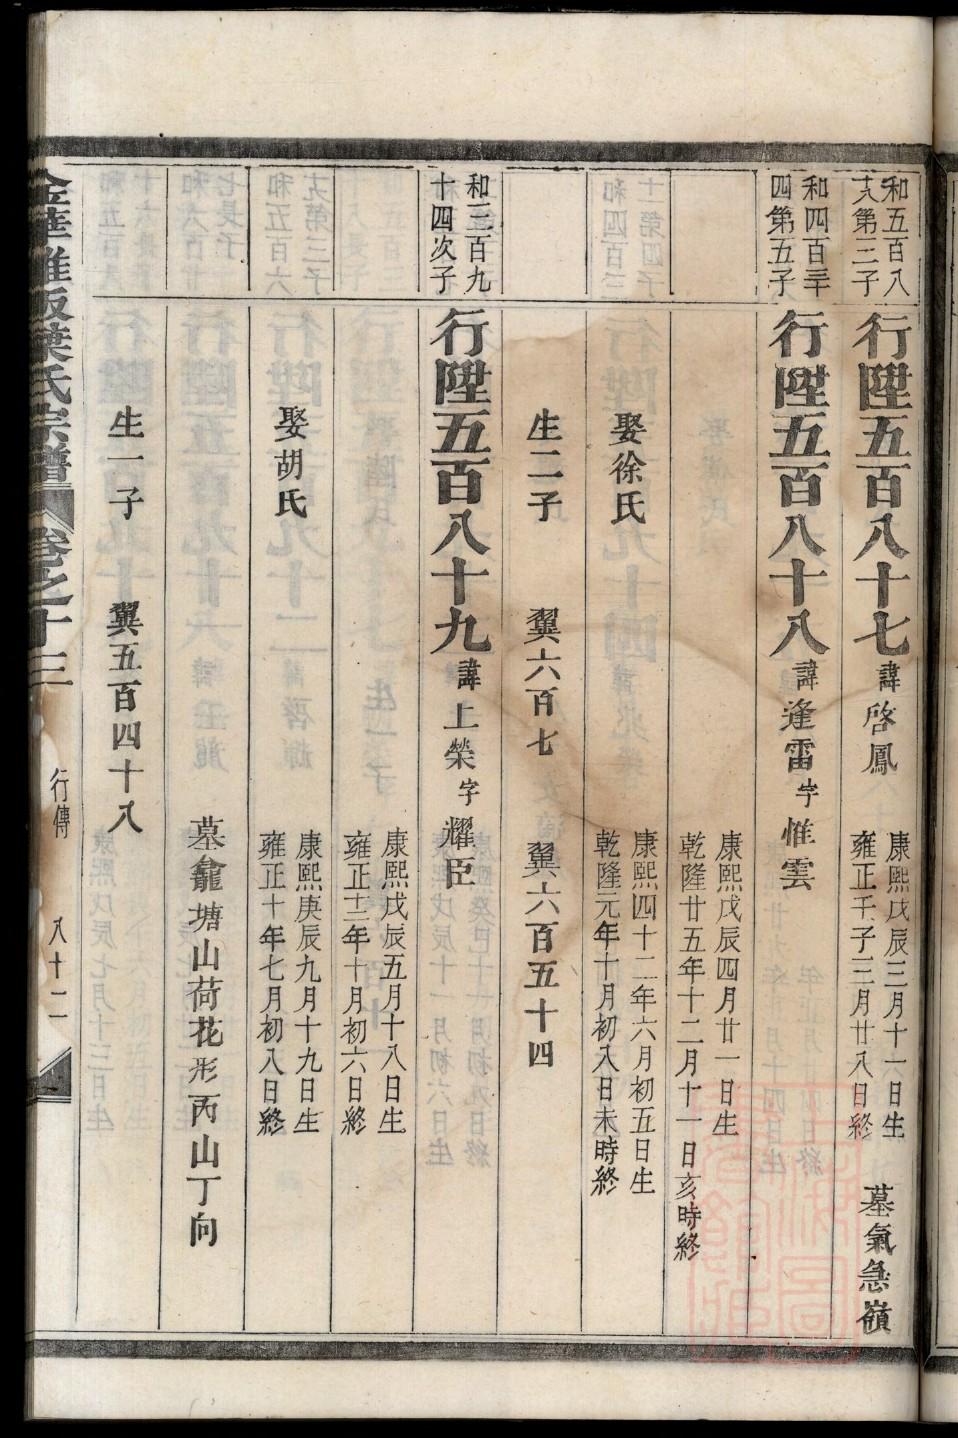 和五百八
十八第三子
行陞五百八十七 諱啓鳳
康熙戊辰三月十六日生
雍正壬子三月廿八日終
墓氣急嶺
和四百三十
四第五子
行陞五百八十八 諱逢雷 字惟雲
康熙戊辰四月廿一日生
乾隆廿五年十二月十一日亥時終
娶徐氏
康熙四十二年六月初五日生
乾隆元年十月初八日未時終
生二子 翼六百七 翼六百五十四
和三百九
十四次子
行陞五百八十九 諱上榮 字耀臣
康熙戊辰五月十八日生
雍正十三年十月初六日終
娶胡氏
康熙庚辰九月十九日生
雍正十年七月初八日終
墓龕塘山荷花形丙山丁向
生一子 翼五百四十八
金華雅畈葉氏宗譜 卷之十三 行傳 八十二